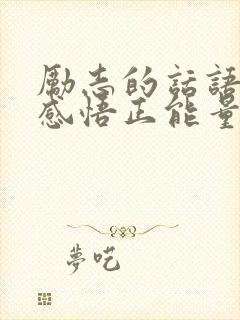 勵志的話語
感悟正能量
夢呓